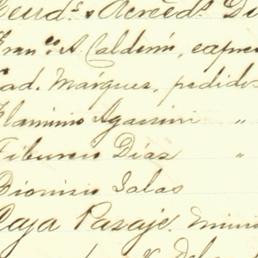 Deud.s & Acreed.s Di
Fran.co A. Calderón, expre
ad. Márquez, pedidos
Flaminio Agassini "
Tiburcio Días "
Dionisio Salas
Caja Pasaje. Minis